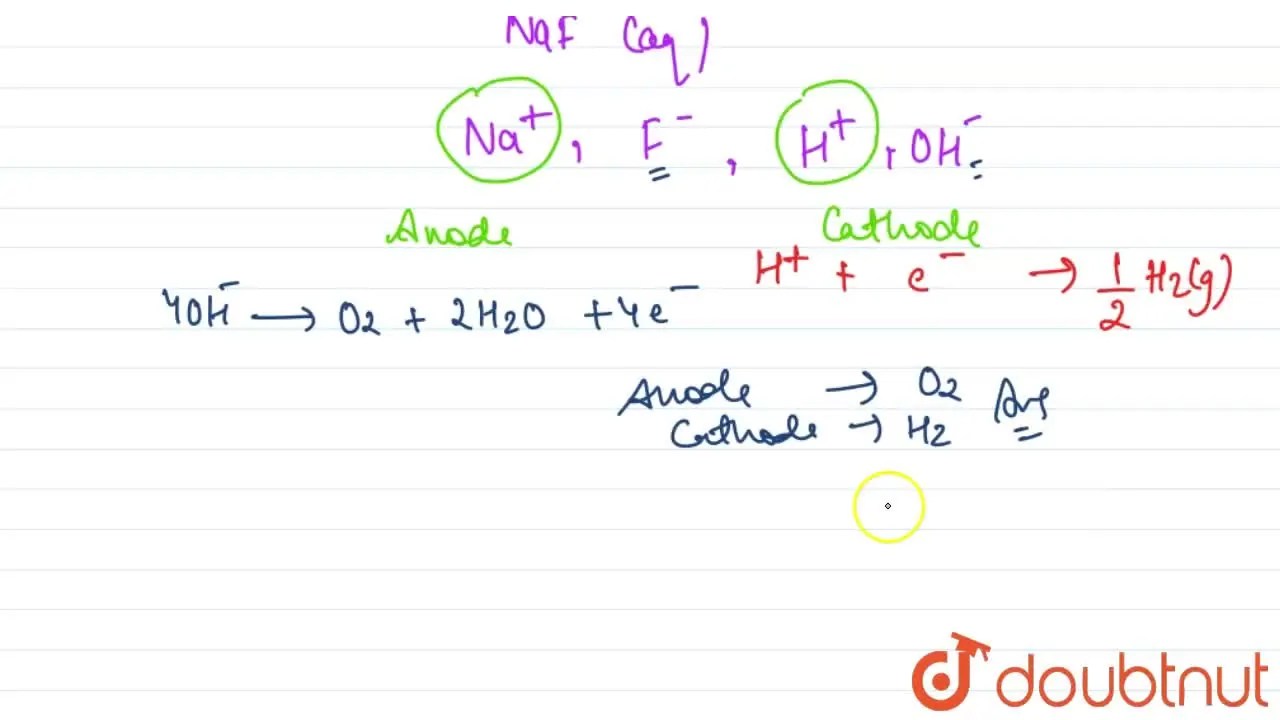 NaF (aq)
Na⁺, F⁻, H⁺, OH⁻
Anode Cathode
H⁺ + e⁻ → 1/2 H₂(g)
4OH⁻ → O₂ + 2H₂O + 4e⁻
Anode → O₂ Ans
Cathode → H₂
doubtnut